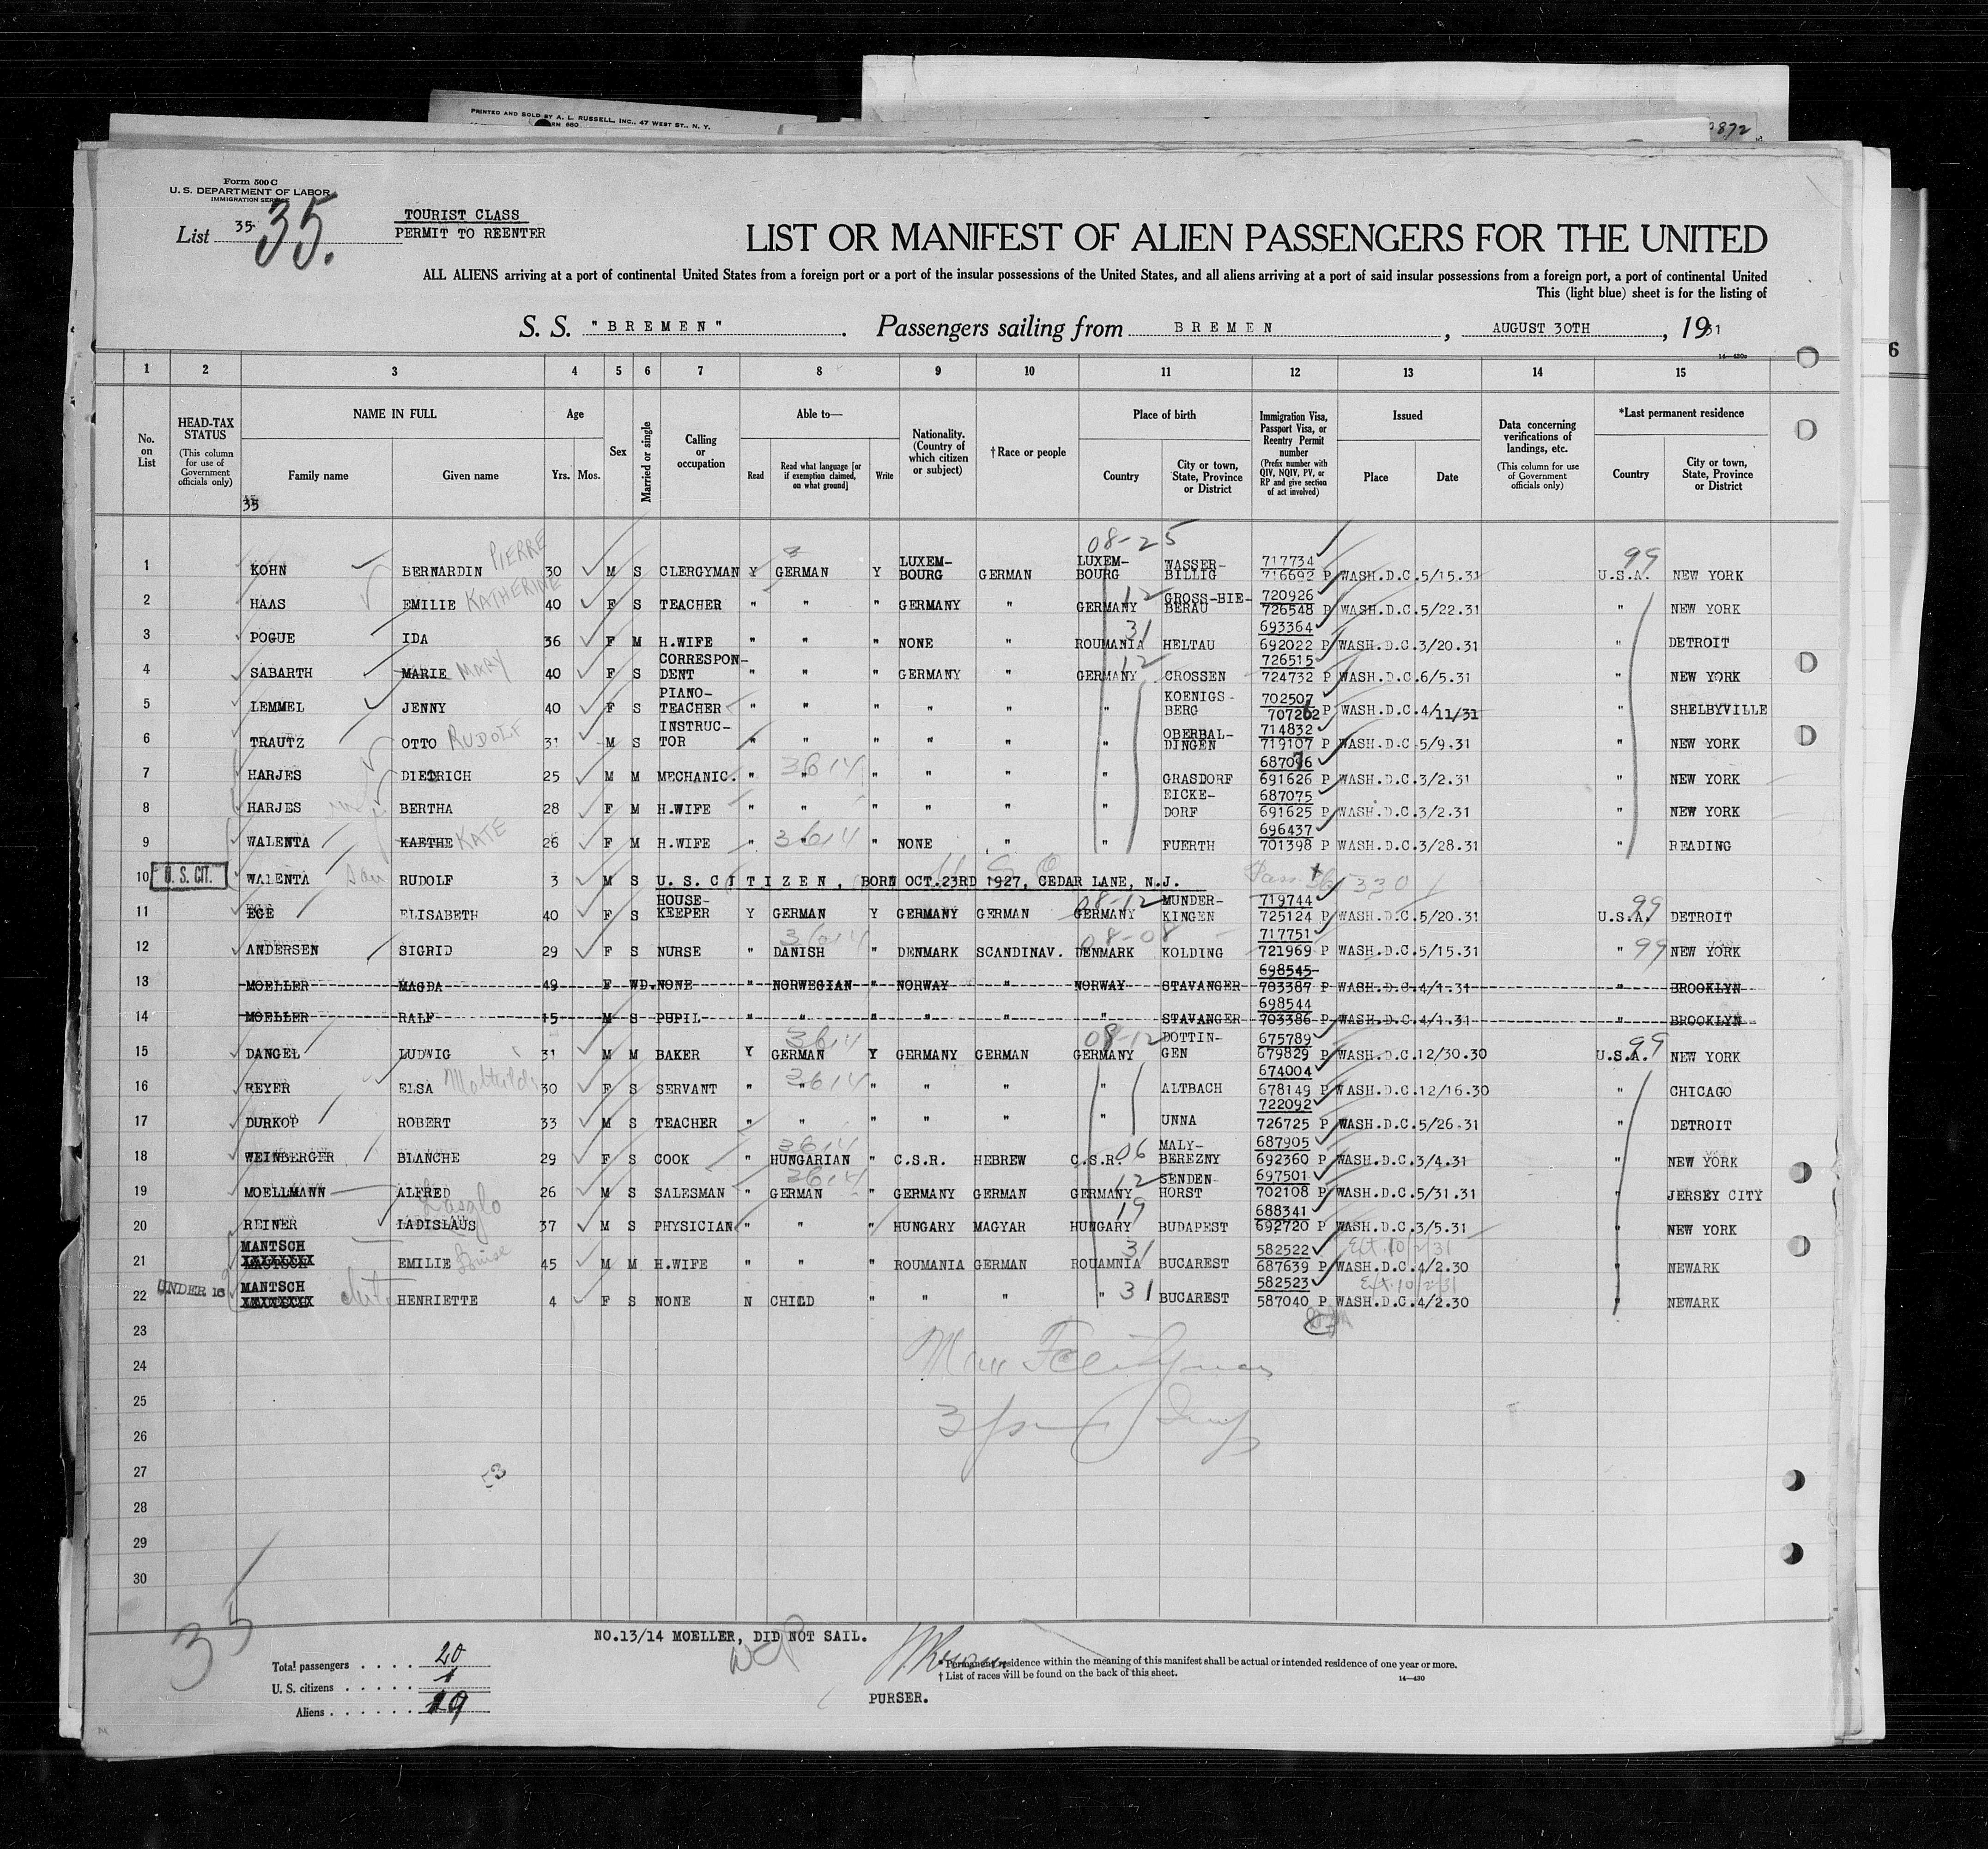 PRINTED AND SOLD BY A. L. RUSSELL, INC., 47 WEST ST., N. Y.
872
Form 500 C
U. S. DEPARTMENT OF LABOR
IMMIGRATION SERVICE
List 35 35.
TOURIST CLASS
PERMIT TO REENTER
LIST OR MANIFEST OF ALIEN PASSENGERS FOR THE UNITED
ALL ALIENS arriving at a port of continental United States from a foreign port or a port of the insular possessions of the United States, and all aliens arriving at a port of said insular possessions from a foreign port, a port of continental United
This (light blue) sheet is for the listing of
S. S. "BREMEN". Passengers sailing from BREMEN, AUGUST 30TH, 1931
14—430a
6
1 2 3 4 5 6 7 8 9 10 11 12 13 14 15
No. on List
HEAD-TAX STATUS (This column for use of Government officials only)
NAME IN FULL Family name Given name
35
Age Yrs. Mos.
Sex
Married or single
Calling or occupation
Able to— Read Read what language [or if exemption claimed, on what ground] Write
Nationality. (Country of which citizen or subject)
†Race or people
Place of birth Country City or town, State, Province or District
Immigration Visa, Passport Visa, or Reentry Permit number (Prefix number with QIV, NQIV, PV, or RP and give section of act involved)
Issued Place Date
Data concerning verifications of landings, etc. (This column for use of Government officials only)
*Last permanent residence Country City or town, State, Province or District
08-25
1 KOHN BERNARDIN PIERRE 30 M S CLERGYMAN Y GERMAN Y LUXEM-BOURG GERMAN LUXEM-BOURG WASSER-BILLIG 717734 716692 P WASH.D.C.5/15.31 U.S.A. 99 NEW YORK
2 HAAS EMILIE KATHERINE 40 F S TEACHER " " " GERMANY " GERMANY 12 GROSS-HIE-BERAU 720926 726548 P WASH.D.C.5/22.31 " NEW YORK
3 POGUE IDA 36 F M H.WIFE " " " NONE " ROUMANIA 31 HELTAU 693364 692022 P WASH.D.C.3/20.31 " DETROIT
4 SABARTH MARIE MARY 40 F S CORRESPON-DENT " " " GERMANY " GERMANY 12 CROSSEN 726515 724732 P WASH.D.C.6/5.31 " NEW YORK
5 LEMMEL JENNY 40 F S PIANO-TEACHER " " " " " " KOENIGS-BERG 702507 707262 P WASH.D.C.4/11/31 " SHELBYVILLE
6 TRAUTZ OTTO RUDOLF 31 M S INSTRUC-TOR " " " " " " OBERBAL-DINGEN 714832 719107 P WASH.D.C.5/9.31 " NEW YORK
7 HARJES DIEDRICH 25 M M MECHANIC. " " 3614 " " " " GRASDORF 687076 691626 P WASH.D.C.3/2.31 " NEW YORK
8 HARJES BERTHA 28 F M H.WIFE " " " " " " EICKE-DORF 687075 691625 P WASH.D.C.3/2.31 " NEW YORK
9 WALENTA KAETHE KATE 26 F M H.WIFE " " 3614 " NONE " " FUERTH 696437 701398 P WASH.D.C.3/28.31 " READING
10 U. S. CIT. WALENTA RUDOLF 3 M S U.S.CITIZEN, BORN OCT.23RD 1927, CEDAR LANE, N.J.
11 EGE ELISABETH 40 F S HOUSE-KEEPER Y GERMAN Y GERMANY GERMAN GERMANY 08-12 MUNDER-KINGEN 719744 725124 P WASH.D.C.5/20.31 U.S.A. 99 DETROIT
12 ANDERSEN SIGRID 29 F S NURSE " DANISH 3614 " DENMARK SCANDINAV. DENMARK 08-08 KOLDING 717751 721969 P WASH.D.C.5/15.31 " 99 NEW YORK
13 MOELLER MAGDA 49 F WD. NONE " NORWEGIAN " NORWAY " NORWAY STAVANGER 698545 703387 P WASH.D.C.4/1.31 " BROOKLYN
14 MOELLER RALF 15 M S PUPIL " " " " " " STAVANGER 698544 703386 P WASH.D.C.4/1.31 " BROOKLYN
15 DANGEL LUDWIG 31 M M BAKER Y GERMAN 3614 Y GERMANY GERMAN GERMANY 08-12 DOTTIN-GEN 675789 679829 P WASH.D.C.12/30.30 U.S.A. 99 NEW YORK
16 REYER ELSA 30 F S SERVANT " " 3614 " " " " ALTBACH 674004 678149 P WASH.D.C.12/16.30 " CHICAGO
17 DURKOP ROBERT 33 M S TEACHER " " " " " " UNNA 722092 726725 P WASH.D.C.5/26.31 " DETROIT
18 WEINBERGER BLANCHE 29 F S COOK " HUNGARIAN 3614 " C.S.R. HEBREW C.S.R. 06 MALY-BEREZNY 687905 692360 P WASH.D.C.3/4.31 " NEW YORK
19 MOELLMANN ALFRED 26 M S SALESMAN " GERMAN 3614 " GERMANY GERMAN GERMANY 12 SENDEN-HORST 697501 702108 P WASH.D.C.5/31.31 " JERSEY CITY
20 REINER LADISLAUS Laszlo 37 M S PHYSICIAN " " " HUNGARY MAGYAR HUNGARY 19 BUDAPEST 688341 692720 P WASH.D.C.3/5.31 " NEW YORK
21 MANTSCH EMILIE Luise 45 M M H.WIFE " " " ROUMANIA GERMAN ROUAMNIA 31 BUCAREST 582522 687639 P WASH.D.C.4/2.30 Ext. 10/2/31 " NEWARK
22 UNDER 16 MANTSCH HENRIETTE 4 F S NONE N CHILD " " " " 31 BUCAREST 582523 587040 P WASH.D.C.4/2.30 Ext. 10/2/31 " NEWARK
23
24
25
26
27
28
29
30
53
35
NO.13/14 MOELLER, DID NOT SAIL.
Total passengers . . . . 20
U. S. citizens . . . . . . 1
Aliens . . . . . . 19
PURSER.
*Permanent residence within the meaning of this manifest shall be actual or intended residence of one year or more.
†List of races will be found on the back of this sheet.
14—430